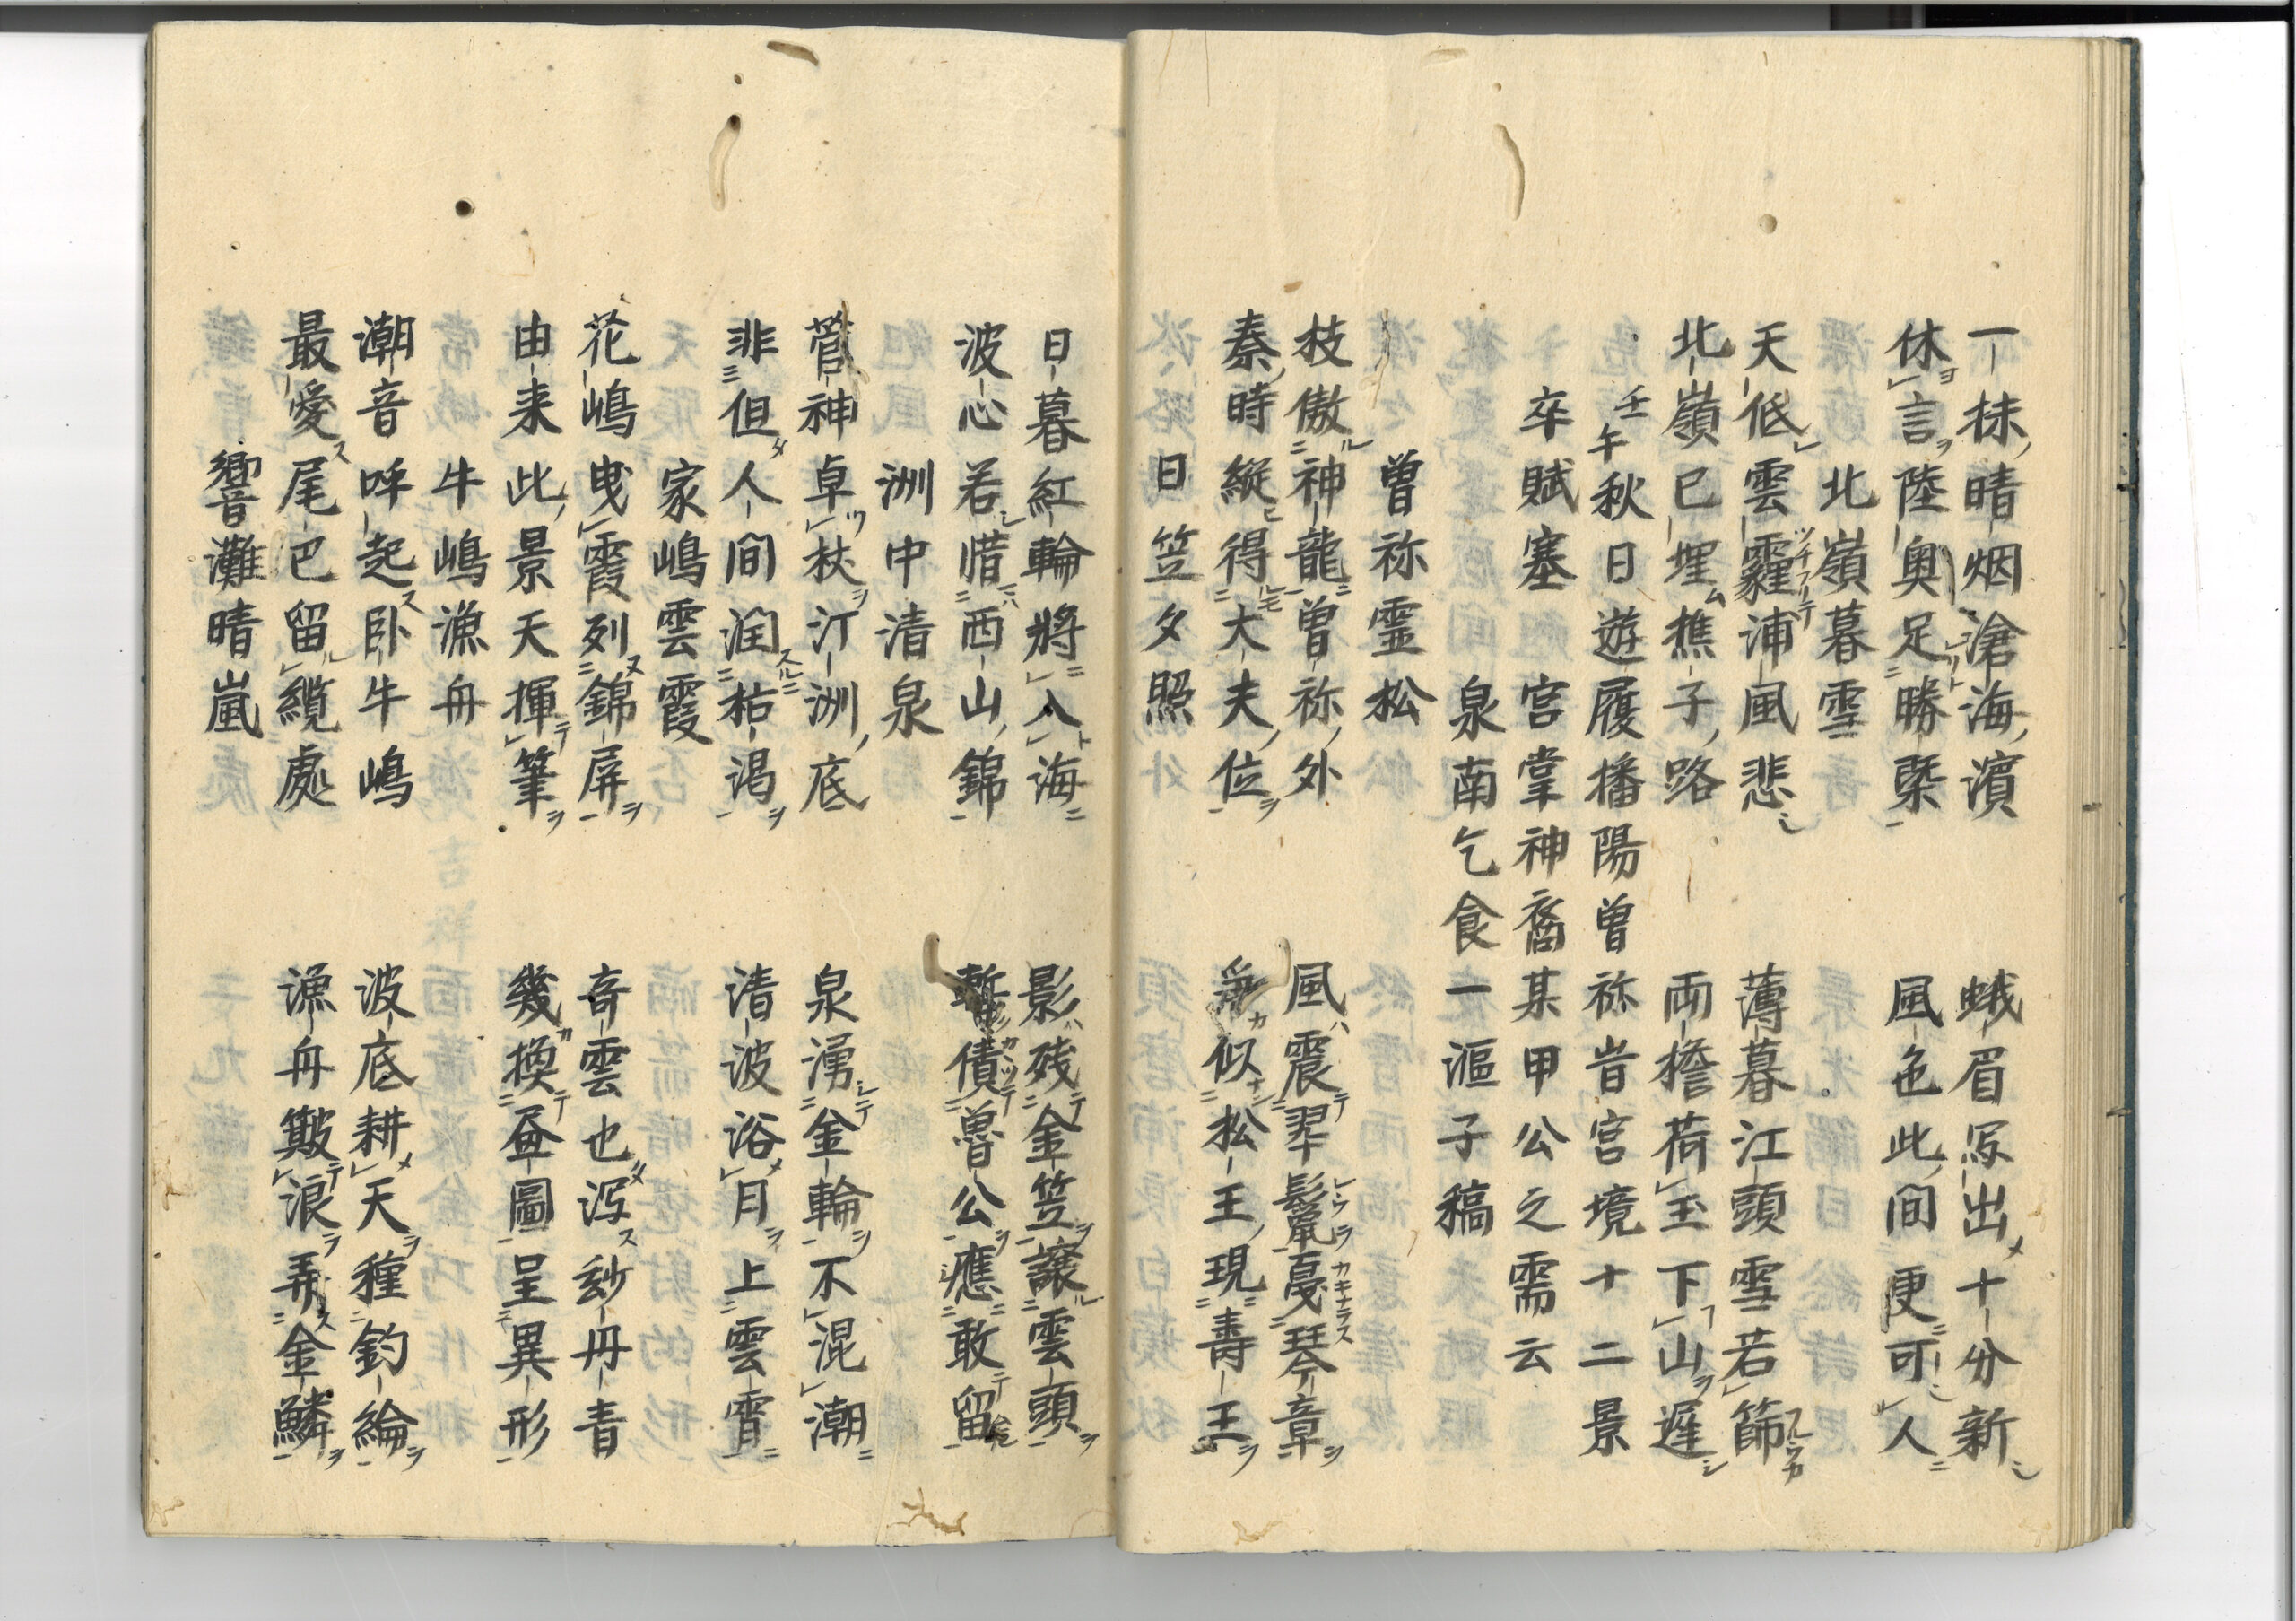 一抹晴烟滄海濵 蛾眉冩出十分新
休言陸奥足勝槩 風色此間更可人
北嶺暮雪
天低雲霾浦風悲 薄暮江頭雪若篩
北嶺已埋樵子路 両檐荷玉下山遅
壬午秋日遊履播陽曽祢岩宮境十二景
卒賦塞 宮掌神裔某甲公之需云
泉南乞食一漚子稿
曽祢霊松
枝傲神龍曽祢外 風震翆鬣戞琴章
秦時縦得大夫位 似松王現壽王
日笠夕照
日暮紅輪將入海 影残金笠譲雲頭
波心若惜西山錦 暫債魯公應敢留
洲中清泉
菅神卓杖汀洲底 泉湧金輪不混潮
非但人間潤枯渇 清波浴月上雲霄
家嶋雲霞
花嶋曳霞列錦屏 奇雲也冩玅丹青
由来此景天揮筆 幾換畫圖呈異形
牛嶋漁舟
潮音呼起卧牛嶋 波底耕天種釣綸
最愛尾巴留纜處 漁舟皺浪弄金鱗
響灘晴嵐